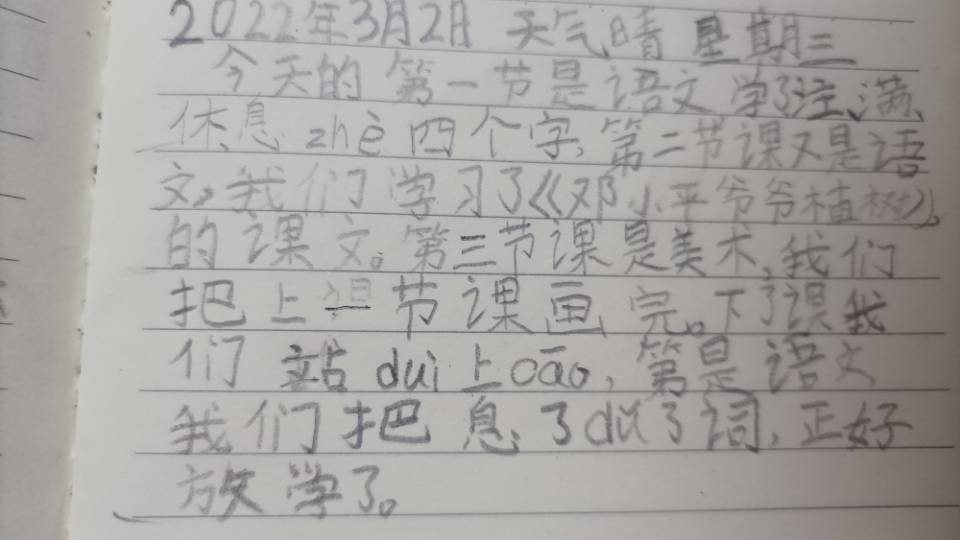 2022年3月2日 天气晴 星期三
今天的第一节是语文学了注、满、
休、息 zhè 四个字,第二节课又是语
文,我们学习了《邓小平爷爷植树》,
的课文。第三节课是美术,我们
把上一节课画完。下了课我
们站 duì 上 cāo,第是语文
我们把息,了 dú 了词,正好
放学了。